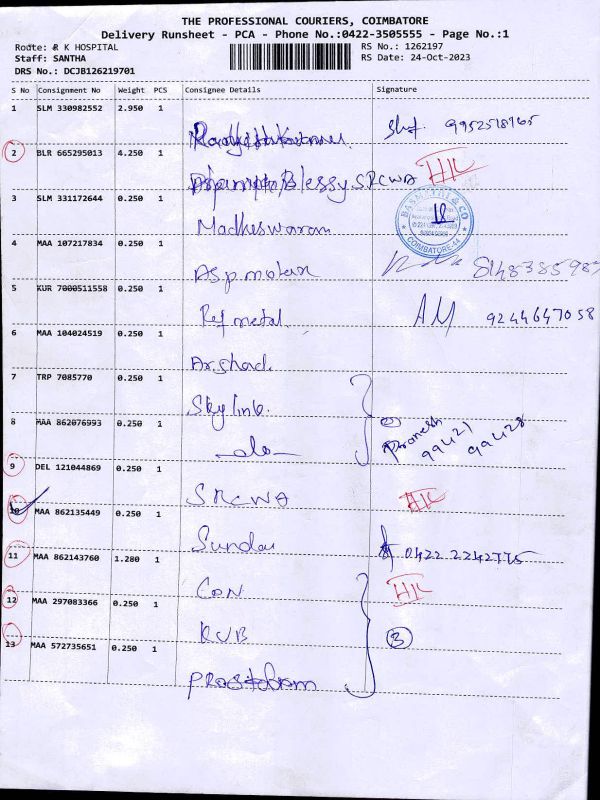 THE PROFESSIONAL COURIERS, COIMBATORE
Delivery Runsheet - PCA - Phone No.:0422-3505555 - Page No.:1
Route: R K HOSPITAL RS No.: 1262197
Staff: SANTHA RS Date: 24-Oct-2023
DRS No.: DCJB126219701
S No Consignment No Weight PCS Consignee Details Signature
1 SLM 330982552 2.950 1
9952518965
2 BLR 665295013 4.250 1
Blessy SRCWA HK
3 SLM 331172644 0.250 1
Madheswaran
BASMATHI & CO
18
COIMBATORE-44
4 MAA 107217834 0.250 1
Asp motors
5 KUR 7000511558 0.250 1
Ref metal. AM 9244647058
6 MAA 104024519 0.250 1
Arshad.
7 TRP 7085770 0.250 1
Sky link.
8 MAA 862076993 0.250 1
-do-
Pranesh
99421
99428
9 DEL 121044869 0.250 1
SRCWA HK
10 MAA 862135449 0.250 1
Sundar 0422 2242775
11 MAA 862143760 1.280 1
CON HK
12 MAA 297083366 0.250 1
KVB 3
13 MAA 572735651 0.250 1